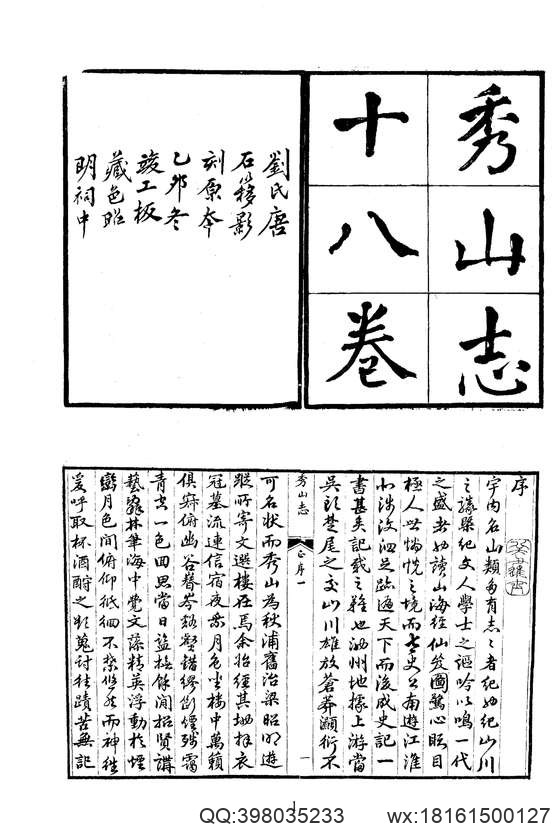 秀山志
十八卷
劉氏唐
石簃影
刻原本
乙卯冬
竣工板
藏邑昭
明祠中
序
宇內名山類多有志志者紀也紀山川
之緣槩紀文人學士之謳吟以鳴一代
之盛者也讀山海經仙笈圖驚心眩目
極人世惝恍之境而太史公南遊江淮
北涉汶泗足跡遍天下而後成史記一
書甚矣記載之難也池州地據上游當
吳頭楚尾之交山川雄放蒼莽灝衍不
秀山志
序
一
可名狀而秀山為秋浦舊治梁昭明遊
蹤所寄文選樓在焉余始經其地拜衣
冠墓流連信宿夜霁月色坐樓中萬籟
俱寂俯幽谷
青空一色回思當日盛極餘閒招賢講
藝翰林筆海中覺文藻精英浮動於煙
巒月色間俯仰低徊不禁悠然而神往
爰呼取杯酒酹之欲蒐討往蹟苦無記
QQ:398035233
wx:18161500127